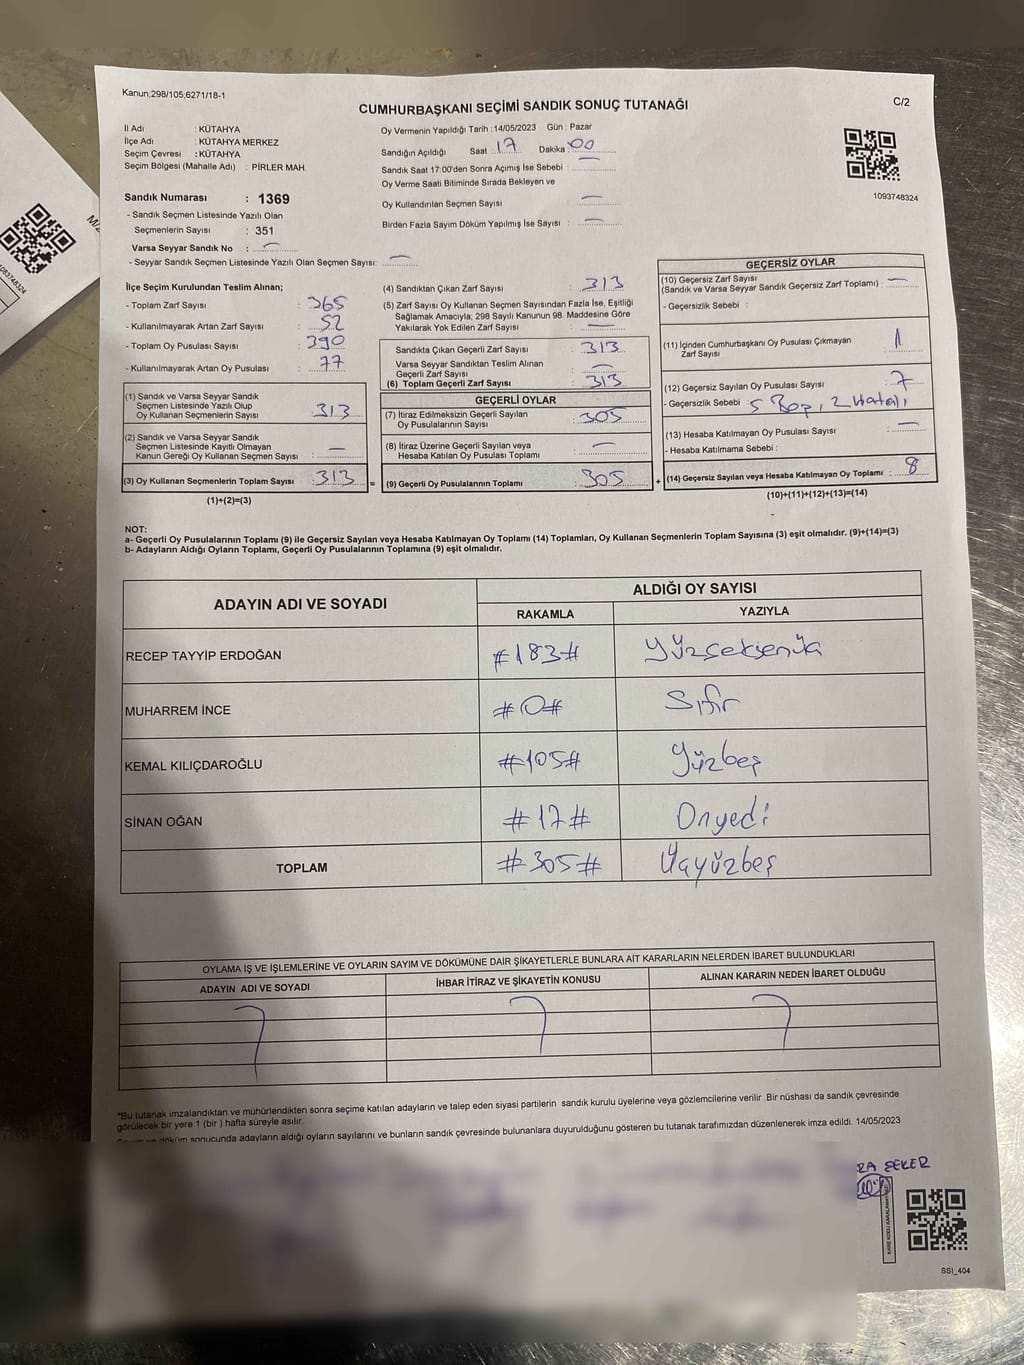 Kanun;298/105;6271/18-1
CUMHURBAŞKANI SEÇİMİ SANDIK SONUÇ TUTANAĞI
C/2
İl Adı : KÜTAHYA
İlçe Adı : KÜTAHYA MERKEZ
Seçim Çevresi : KÜTAHYA
Seçim Bölgesi (Mahalle Adı) : PİRLER MAH.
Oy Vermenin Yapıldığı Tarih :14/05/2023 Gün : Pazar
Sandığın Açıldığı Saat : 17 Dakika : 00
Sandık Saat 17:00'den Sonra Açımış İse Sebebi : —
Oy Verme Saati Bitiminde Sırada Bekleyen ve
Oy Kullandırılan Seçmen Sayısı : —
Birden Fazla Sayım Döküm Yapılmış İse Sayısı : —
1093748324
Sandık Numarası : 1369
- Sandık Seçmen Listesinde Yazılı Olan
Seçmenlerin Sayısı : 351
Varsa Seyyar Sandık No : —
- Seyyar Sandık Seçmen Listesinde Yazılı Olan Seçmen Sayısı: —
İlçe Seçim Kurulundan Teslim Alınan;
- Toplam Zarf Sayısı : 365
- Kullanılmayarak Artan Zarf Sayısı : 52
- Toplam Oy Pusulası Sayısı : 390
- Kullanılmayarak Artan Oy Pusulası : 77
(1) Sandık ve Varsa Seyyar Sandık
Seçmen Listesinde Yazılı Olup
Oy Kullanan Seçmenlerin Sayısı : 313
(2) Sandık ve Varsa Seyyar Sandık
Seçmen Listesinde Kayıtlı Olmayan
Kanun Gereği Oy Kullanan Seçmen Sayısı : —
(3) Oy Kullanan Seçmenlerin Toplam Sayısı : 313 =
(1)+(2)=(3)
(4) Sandıktan Çıkan Zarf Sayısı : 313
(5) Zarf Sayısı Oy Kullanan Seçmen Sayısından Fazla İse, Eşitliği
Sağlamak Amacıyla; 298 Sayılı Kanunun 98. Maddesine Göre
Yakılarak Yok Edilen Zarf Sayısı : —
Sandıkta Çıkan Geçerli Zarf Sayısı : 313
Varsa Seyyar Sandıktan Teslim Alınan
Geçerli Zarf Sayısı : —
(6) Toplam Geçerli Zarf Sayısı : 313
GEÇERLİ OYLAR
(7) İtiraz Edilmeksizin Geçerli Sayılan
Oy Pusulalarının Sayısı : 305
(8) İtiraz Üzerine Geçerli Sayılan veya
Hesaba Katılan Oy Pusulası Toplamı : —
(9) Geçerli Oy Pusulalarının Toplamı : 305 +
GEÇERSİZ OYLAR
(10) Geçersiz Zarf Sayısı
(Sandık ve Varsa Seyyar Sandık Geçersiz Zarf Toplamı) : —
- Geçersizlik Sebebi :
(11) İçinden Cumhurbaşkanı Oy Pusulası Çıkmayan
Zarf Sayısı : 1
(12) Geçersiz Sayılan Oy Pusulası Sayısı : 7
- Geçersizlik Sebebi : 5 Boş, 2 Hatalı
(13) Hesaba Katılmayan Oy Pusulası Sayısı : —
- Hesaba Katılmama Sebebi :
(14) Geçersiz Sayılan veya Hesaba Katılmayan Oy Toplamı : 8
(10)+(11)+(12)+(13)=(14)
NOT:
a- Geçerli Oy Pusulalarının Toplamı (9) ile Geçersiz Sayılan veya Hesaba Katılmayan Oy Toplamı (14) Toplamları, Oy Kullanan Seçmenlerin Toplam Sayısına (3) eşit olmalıdır. (9)+(14)=(3)
b- Adayların Aldığı Oyların Toplamı, Geçerli Oy Pusulalarının Toplamına (9) eşit olmalıdır.
ADAYIN ADI VE SOYADI
ALDIĞI OY SAYISI
RAKAMLA YAZIYLA
RECEP TAYYİP ERDOĞAN #183#
MUHARREM İNCE #0# Sıfır
KEMAL KILIÇDAROĞLU #105# Yüzbeş
SİNAN OĞAN #17# Onyedi
TOPLAM #305# Üçyüzbeş
OYLAMA İŞ VE İŞLEMLERİNE VE OYLARIN SAYIM VE DÖKÜMÜNE DAİR ŞİKAYETLERLE BUNLARA AİT KARARLARIN NELERDEN İBARET BULUNDUKLARI
ADAYIN ADI VE SOYADI
İHBAR İTİRAZ VE ŞİKAYETİN KONUSU
ALINAN KARARIN NEDEN İBARET OLDUĞU
*Bu tutanak imzalandıktan ve mühürlendikten sonra seçime katılan adayların ve talep eden siyasi partilerin sandık kurulu üyelerine veya gözlemcilerine verilir .Bir nüshası da sandık çevresinde
görülecek bir yere 1 (bir ) hafta süreyle asılır.
döküm sonucunda adayların aldığı oyların sayılarını ve bunların sandık çevresinde bulunanlara duyurulduğunu gösteren bu tutanak tarafımızdan düzenlenerek imza edildi. 14/05/2023
ŞEKER
SSI_404